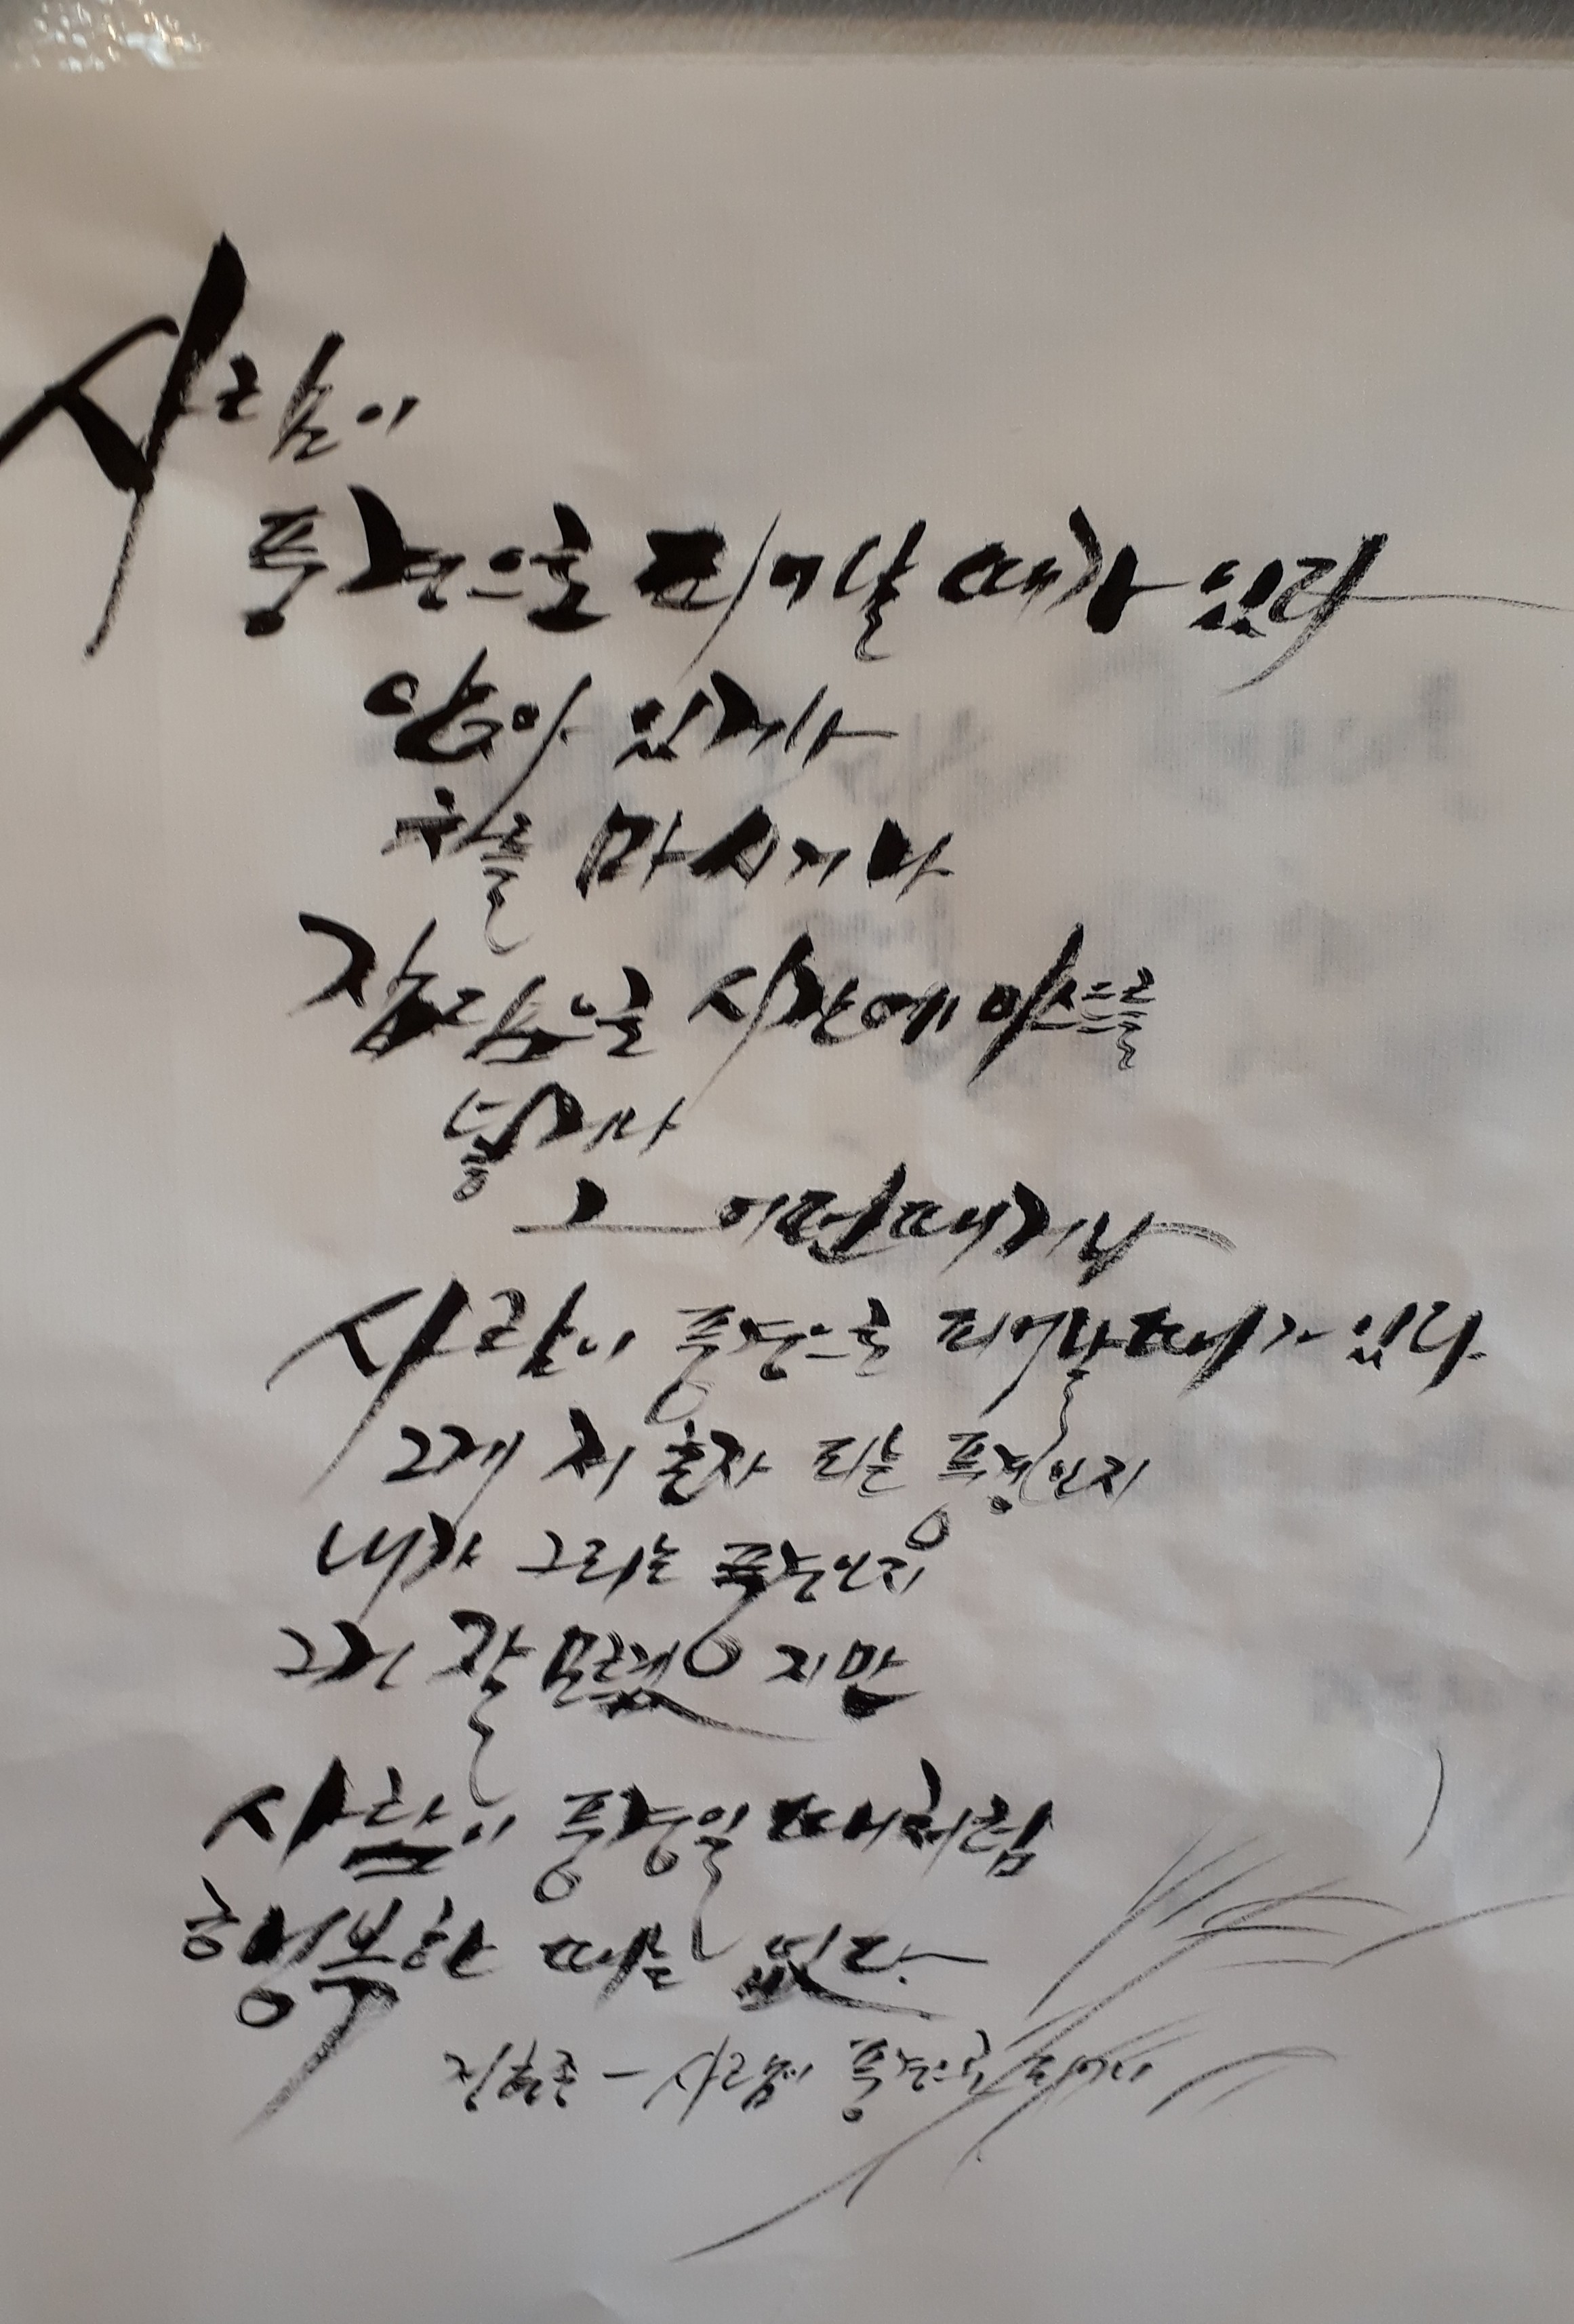 사람이
풍경으로 피어날 때가 있다
앉아 있거나
차를 마시거나
잡담으로 시간에 이스트를
넣거나
그 어떤때거나
사람이 풍경으로 피어날 때가 있다
그게 저 혼자 피는 풍경인지
내가 그리는 풍경인지
그건 잘 모르겠지만
사람이 풍경일 때처럼
행복한 때는 없다.
정현종 - 사람이 풍경으로 피어나